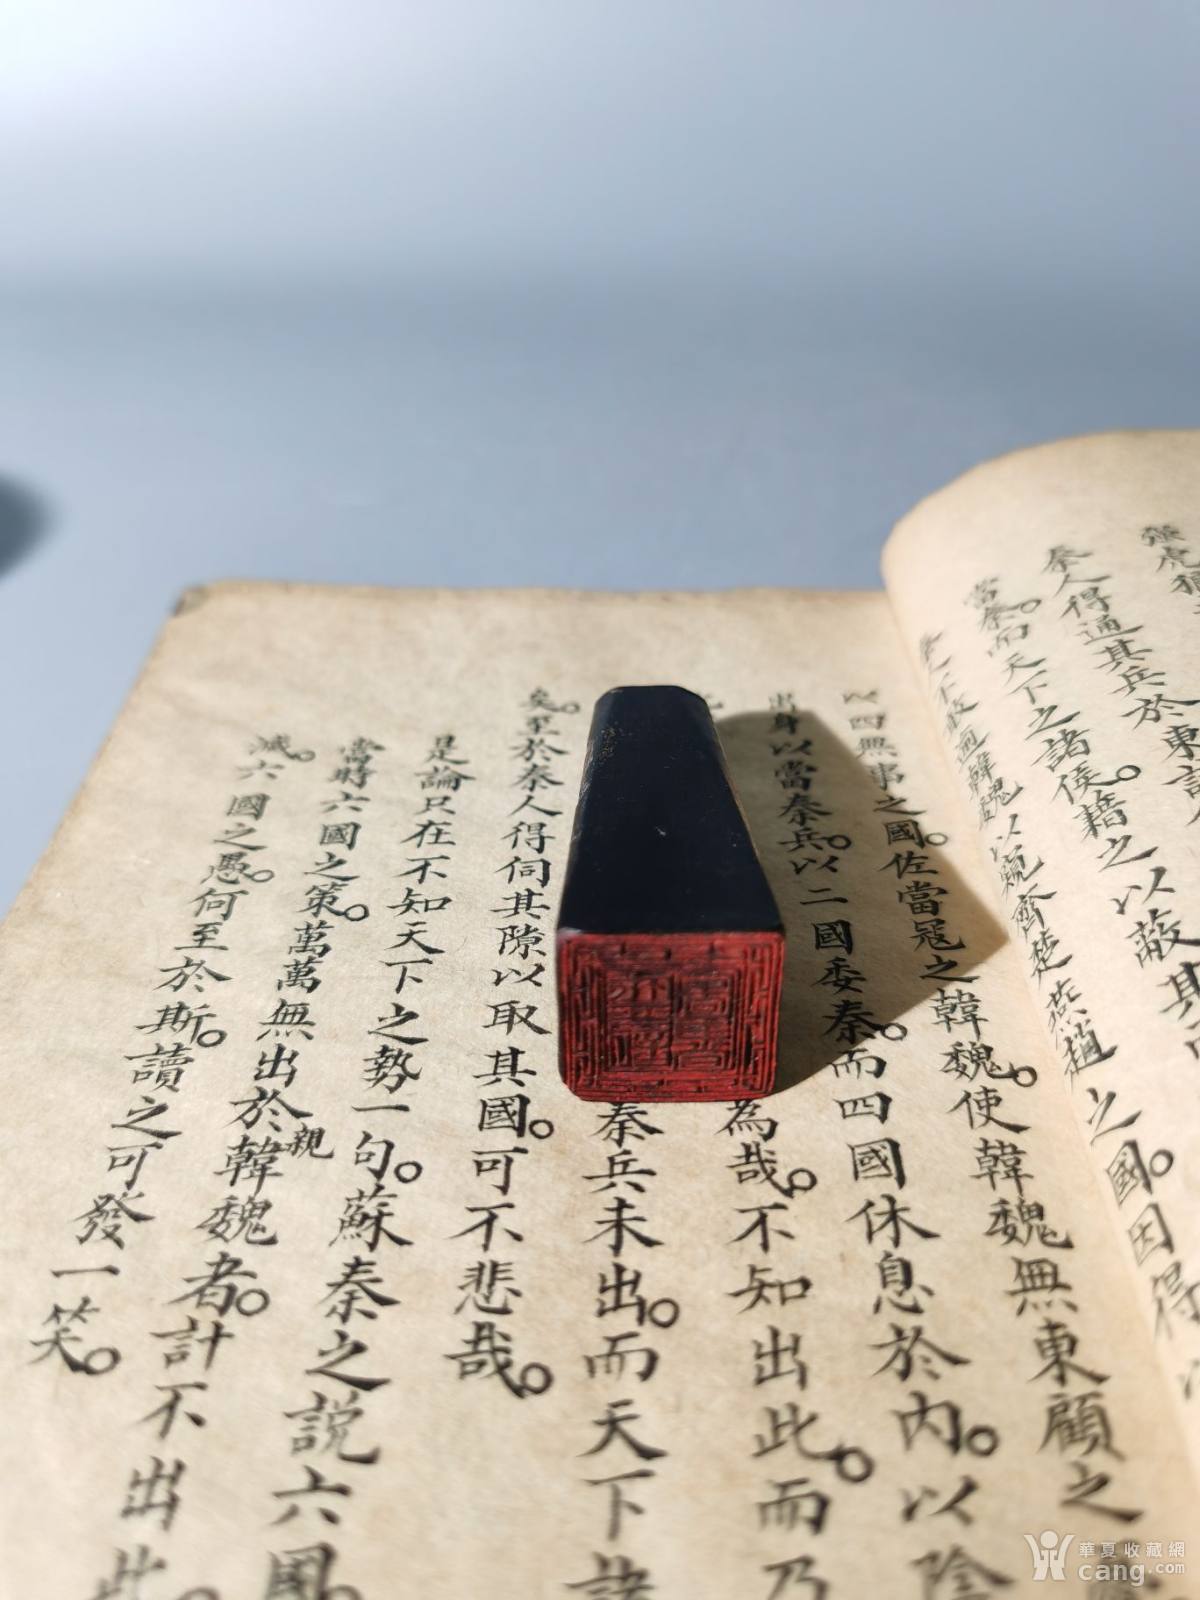 秦人得通其兵於東諸
當秦而天下之諸侯藉之以蔽其
韓魏以窺齊楚燕趙之國因得以
使韓魏無東顧之
以四無事之國佐當寇之韓魏
出身以當秦兵以二國委秦而四國休息於內以陰
為哉不知出此而乃
秦兵未出而天下諸
矣至於秦人得伺其隙以取其國可不悲哉
是論只在不知天下之勢一句蘇秦之說六國
當時六國之策萬萬無出於韓魏者計不出此
親
滅六國之愚何至於斯讀之可發一笑
華夏收藏網
cang.com